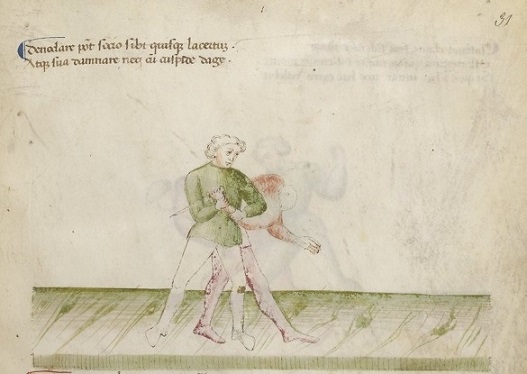 31
Denodare pōt socio sibi quisqꝫ lacertus .
Atqꝫ sua damnare neci cū cuspide dage .